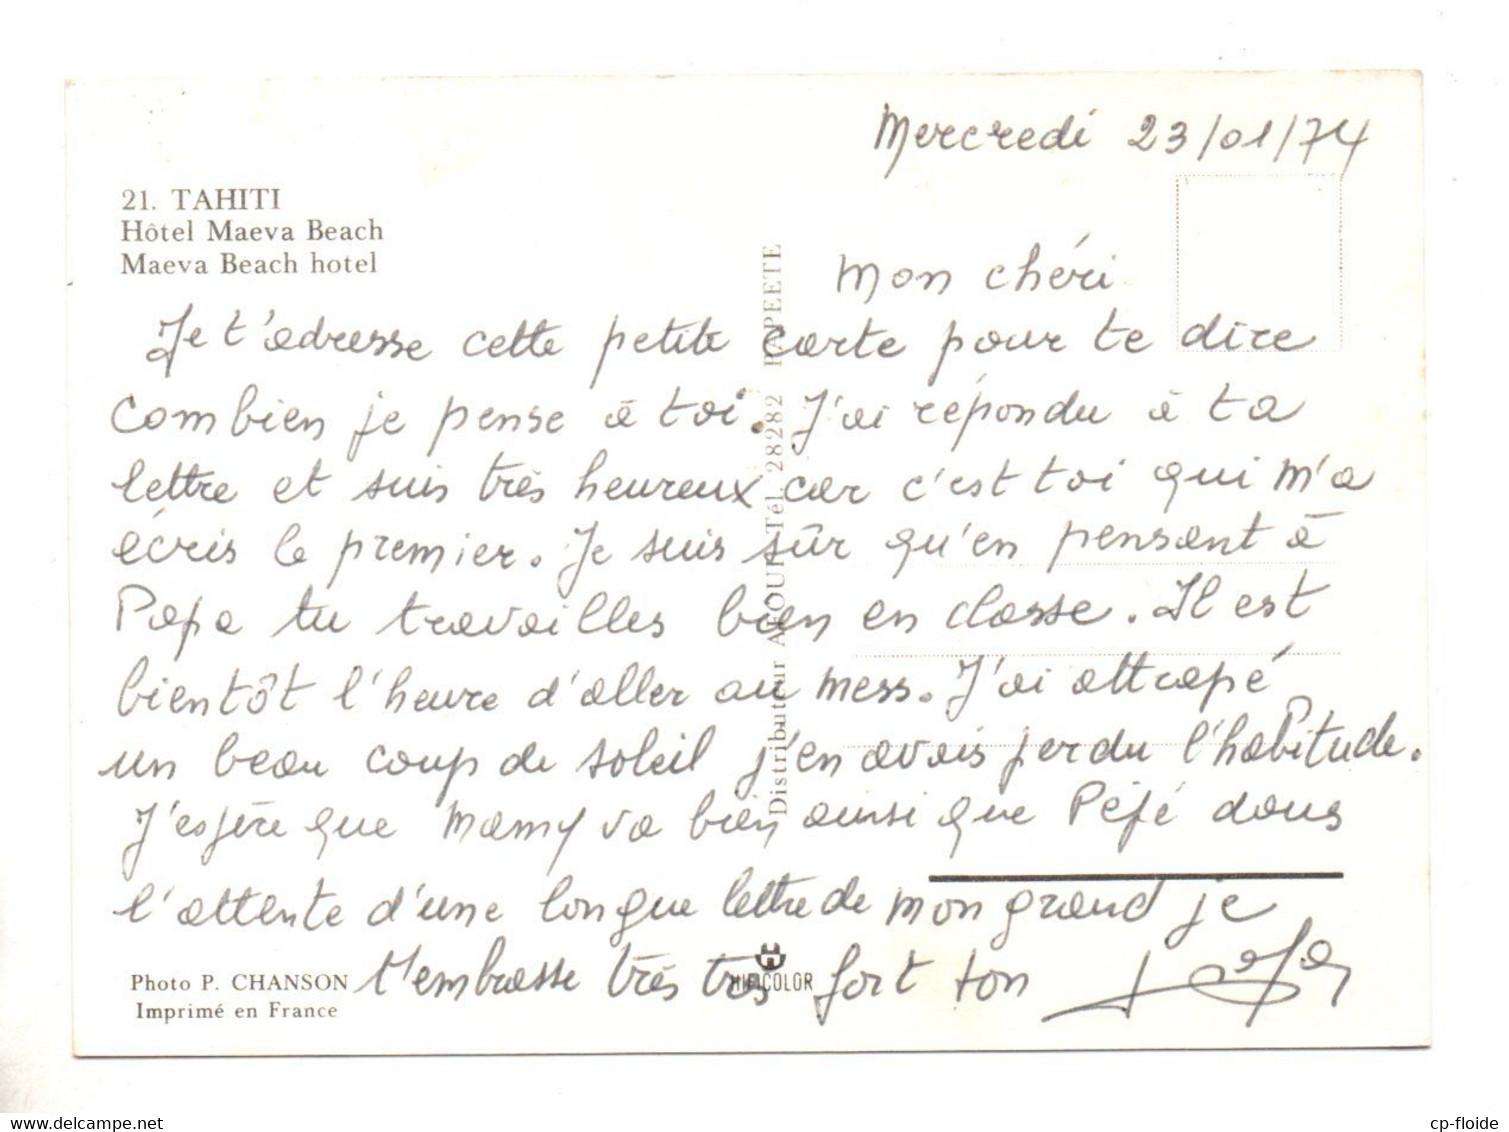 Mercredi 23/01/74
21. TAHITI
Hôtel Maeva Beach
Maeva Beach hotel
Mon chéri
Je t'adresse cette petite carte pour te dire
combien je pense à toi. J'ai répondu à ta
lettre et suis très heureux car c'est toi qui m'a
écris le premier. Je suis sûr qu'en pensant à
Papa tu travailles bien en classe. Il est
bientôt l'heure d'aller au mess. J'ai attrapé
un beau coup de soleil j'en avais perdu l'habitude.
J'espère que Mamy va bien ainsi que Pépé dans
l'attente d'une longue lettre de mon grand je
t'embrasse très très fort ton Papa
Distributeur Tél. 28282 PAPEETE
Photo P. CHANSON
Imprimé en France
HIFICOLOR
delcampe.net
cp-floide